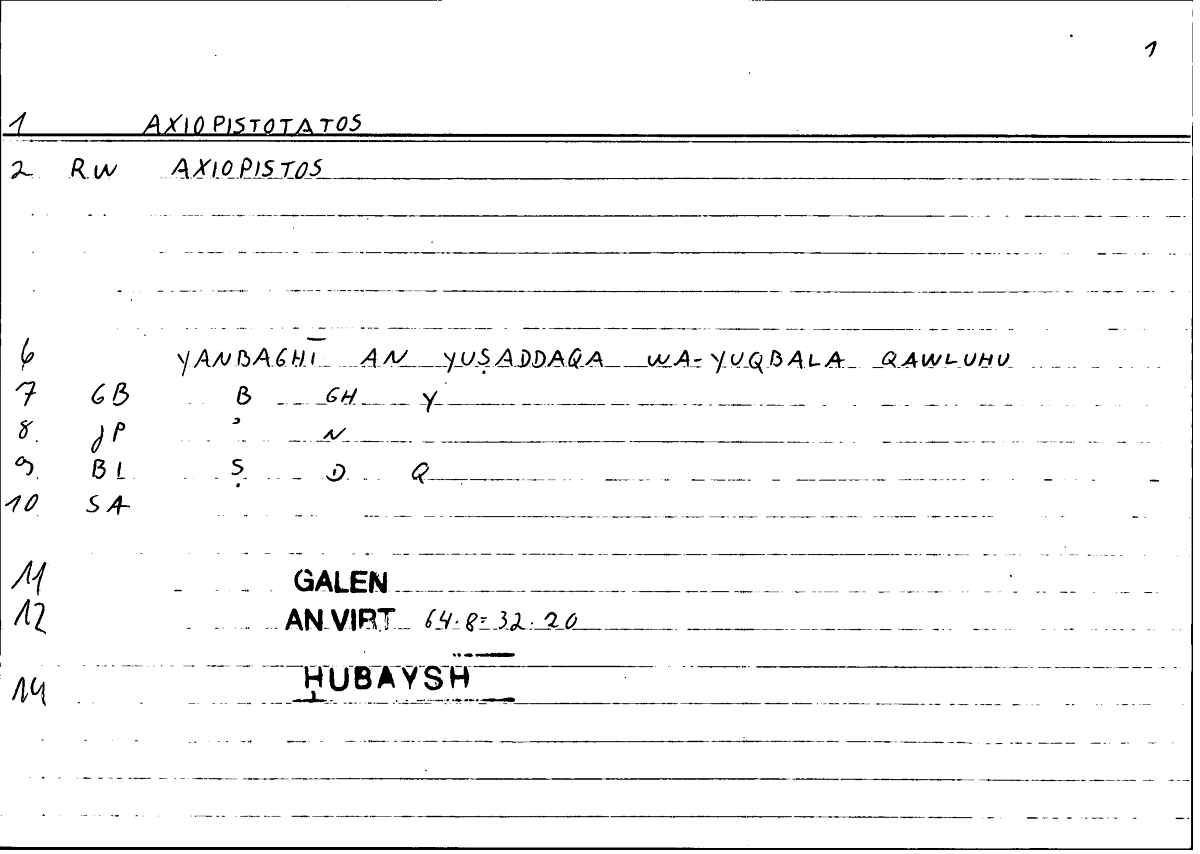 1
1 AXIOPISTOTATOS
2 RW AXIOPISTOS
6 YANBAGHĪ AN YUṢADDAQA WA-YUQBALA QAWLUHU
7 GB B GH Y
8 JP ʾ N
9 BL Ṣ D Q
10 SA
11 GALEN
12 AN VIRT 64.8=32.20
14 ḤUBAYSH